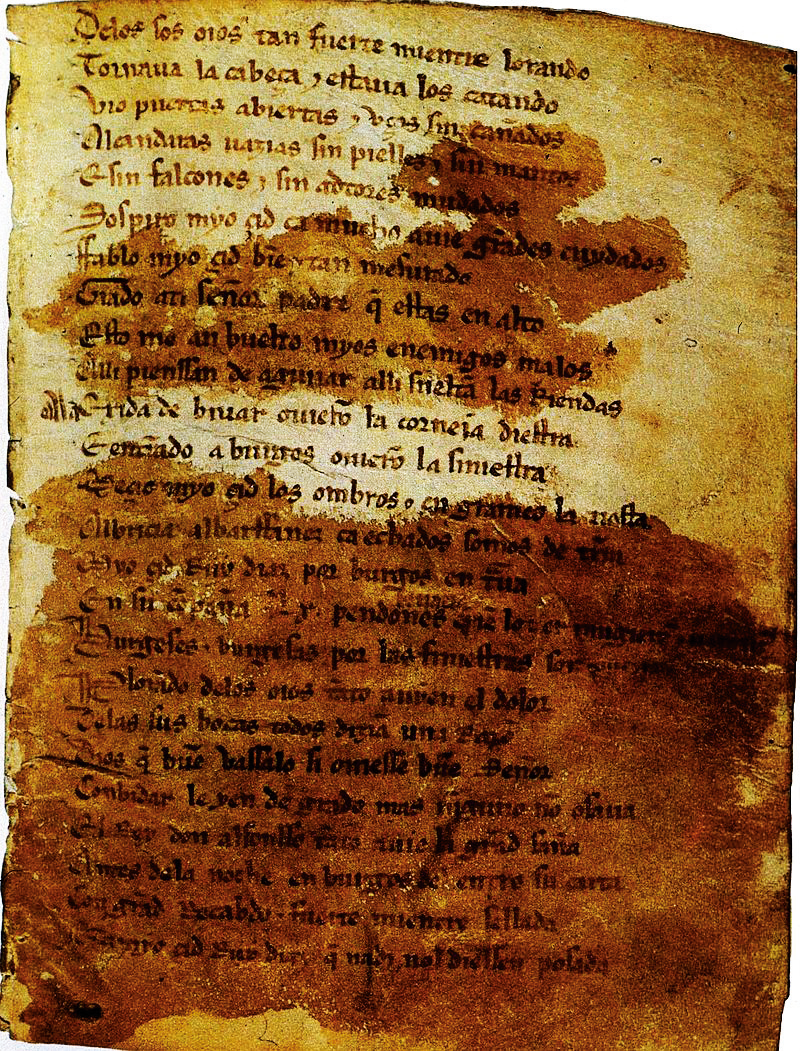 Delos sos oios tan fuerte mientre lorando
Tornaua la cabeça ⁊ estaua los catando
Vio puertas abiertas ⁊ vços sin cañados
Alcandaras uazias sin pielles ⁊ sin mantos
E sin falcones ⁊ sin adtores mudados
Sospiro myo çid ca mucho auie grãdes cuydados
Ffablo myo çid bien ⁊ tan mesurado
Grado ati señor padre q̃ estas en alto
Esto me an buelto myos enemigos malos
Alli pienssan de aguiiar alli sueltã las Riendas
Ala Exida de biuar ouierõ la corneia diestra
E entrãdo a burgos ouierõ la siniestra
Meçio myo çid los ombros ⁊ en grameo la tiesta
Albricia albarffanez ca echados somos de trr̃a
Myo çid Ruy diaz por burgos en traua
En su cõpaña Lx pendones
Burgeses ⁊ burgesas por las finiestras son
Plorãdo delos oios tãto auyen el dolor
Delas sus bocas todos dizian una Razõ
Dios q̃ buẽ vassalo si ouiesse buẽ Señor
Conbidar le yen de grado mas ninguno nõ osaua
El Rey don alfonsso tãto auie la grãd saña
Antes dela noche en burgos del entro su carta
Con grãd Recabdo ⁊ fuerte mientre sellada
Que a myo çid Ruy diaz q̃ nadi nol diessen posada